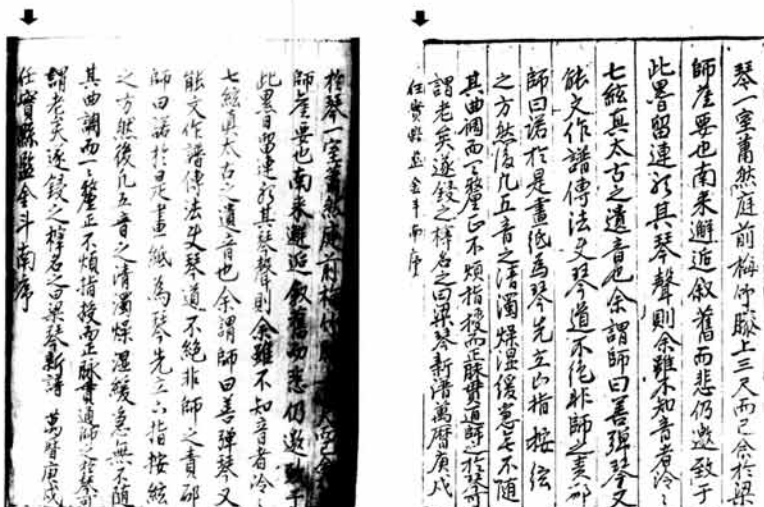 於琴一室蕭然庭前梅竹膝
師崔要也南來邂逅叙舊而悲仍邀致于
此畧留連於其琴聲則余雖不知音者泠〻
七絃真太古之遺音也余謂師曰善彈琴又
能文作譜傳法使琴道不絶非師之責耶
師曰諾於是畫紙為琴先立山指按絃
之方然後凡五音之清濁燥濕緩急無不隨
其曲調而一〻釐正不煩指授而正脉貫通師之於琴可
謂老矣遂鋟之梓名之曰梁琴新譜 萬曆庚戌
任實縣監金斗南序
琴一室蕭然庭前梅竹膝上三尺而已余於梁
師崔要也南來邂逅叙舊而悲仍邀致于
此畧留連於其琴聲則余雖不知音者泠〻
七絃真太古之遺音也余謂師曰善彈琴又
能文作譜傳法使琴道不絶非師之責耶
師曰諾於是畫紙為琴先立山指按絃
之方然後凡五音之清濁燥濕緩急無不隨
其曲調而一〻釐正不煩指授而正脉貫通師之於琴可
謂老矣遂鋟之梓名之曰梁琴新譜萬曆庚戌
任實縣監金斗南序